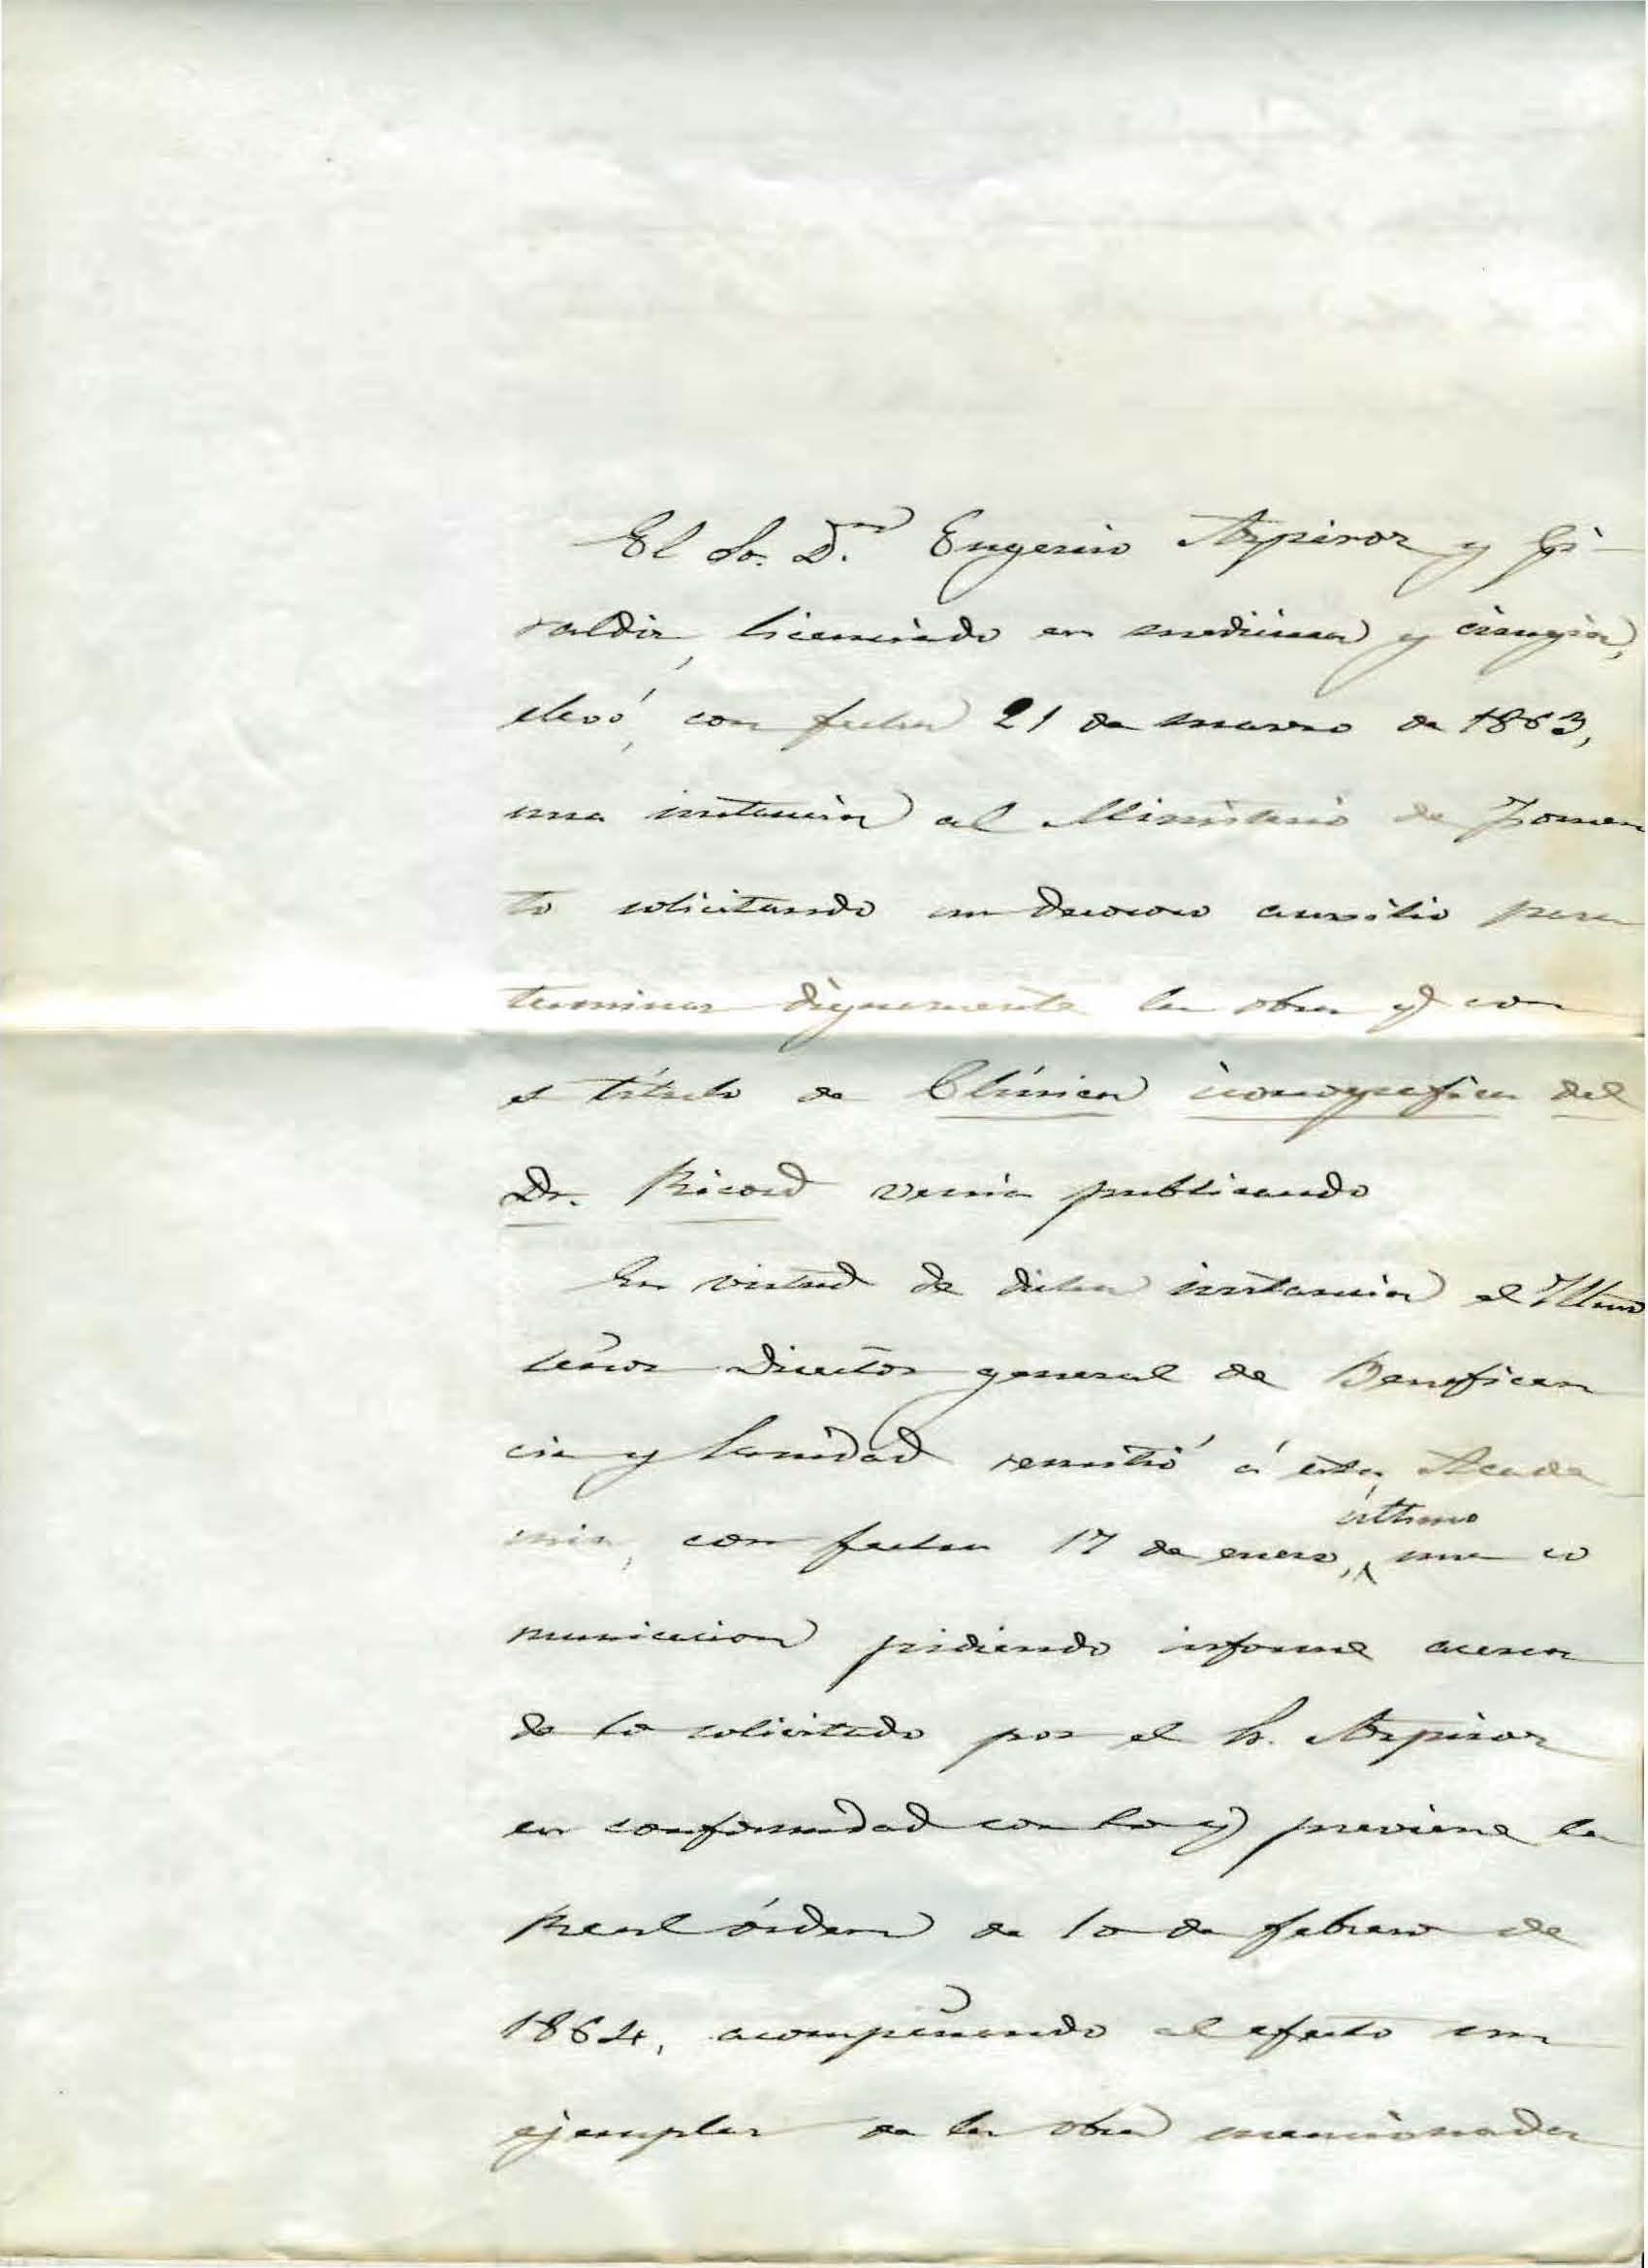 El Sr. D.ⁿ Eugenio Azpiroz y Gi-
raldiz, licenciado en medicina y cirugia,
elevó, con fecha 21 de marzo de 1863,
una instancia al Ministerio de Fomen
to solicitando un decoroso auxilio para
terminar dignamente la obra q con
el título de Clínica iconografica del
Dr. Ricord venia publicando
En virtud de dicha instancia el Iltmo
señor Director general de Beneficen
cia y Sanidad remitió á esta Acade
mia, con fecha 17 de enero, último una co
municacion pidiendo informe acerca
de lo solicitado por el Sr. Azpiroz
en conformidad con lo q previene la
Real órden de 10 de febrero de
1864, acompañando al efecto un
ejemplar de la obra mencionada